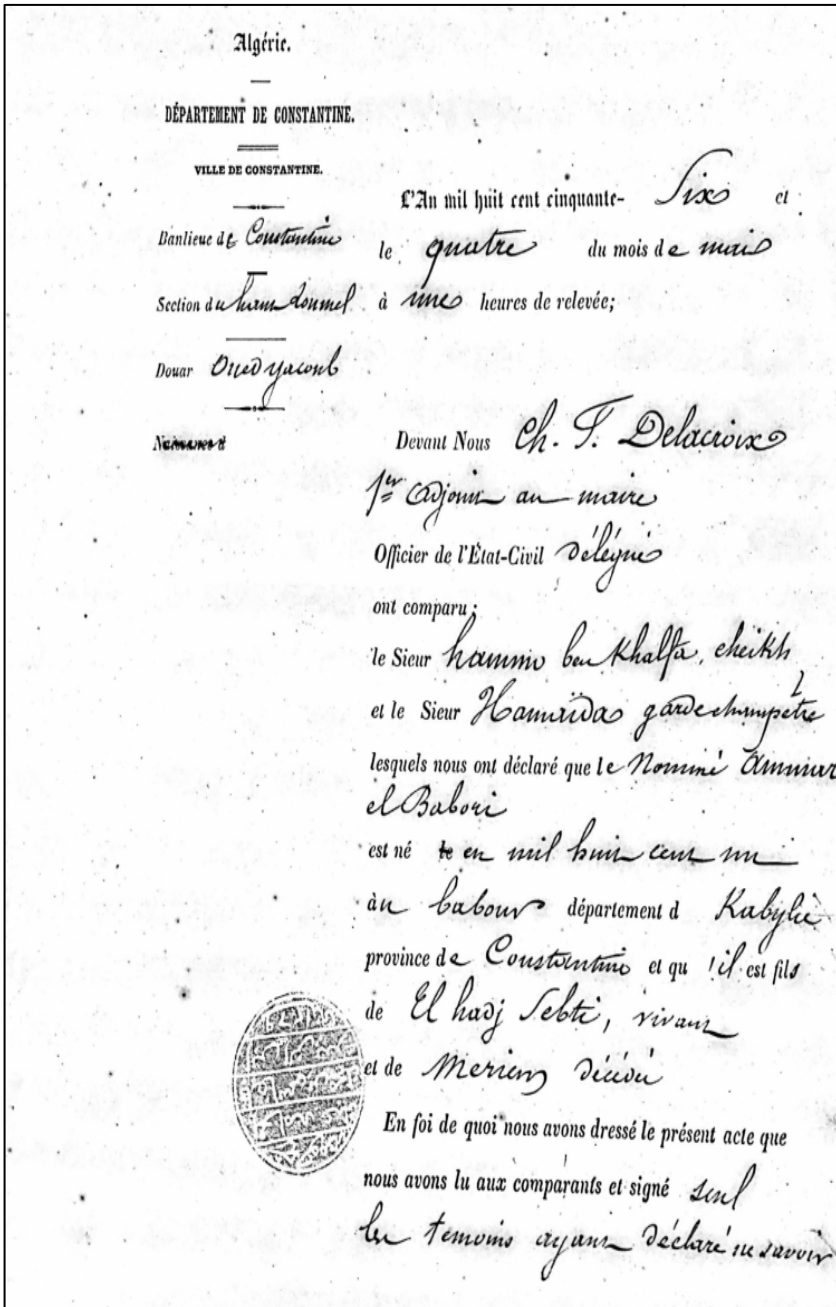 Algérie.
DÉPARTEMENT DE CONSTANTINE.
VILLE DE CONSTANTINE.
Banlieue de Constantine
Section du ham
Douar Oued yacoub
L'An mil huit cent cinquante- Six et
le quatre du mois de mai
à une heures de relevée;
Devant Nous Ch. F. Delacroix
1er adjoint au maire
Officier de l'État-Civil délégué
ont comparu;
le Sieur hammo ben Khalfa, cheikh
et le Sieur Hamaïda garde champêtre
lesquels nous ont déclaré que le Nommé Ammar
el Babori
est né le en mil huit cent un
au babour département d Kabylie
province de Constantine et qu'il est fils
de El hadj Sebti, vivant
et de Meriem décédée
En foi de quoi nous avons dressé le présent acte que
nous avons lu aux comparants et signé seul
les temoins ayant déclaré ne savoir